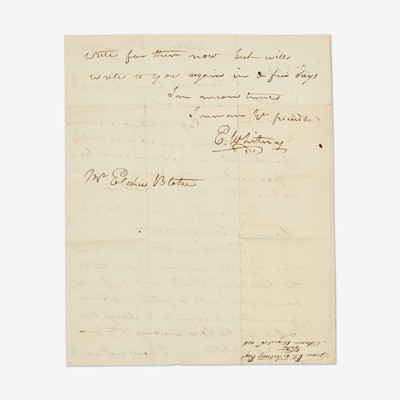 write further now but will
write to you again in a few days
In mean time
I remain Yr friend &c
E. Whitney
Mr Elihu Blake
From E. Whitney Esqr